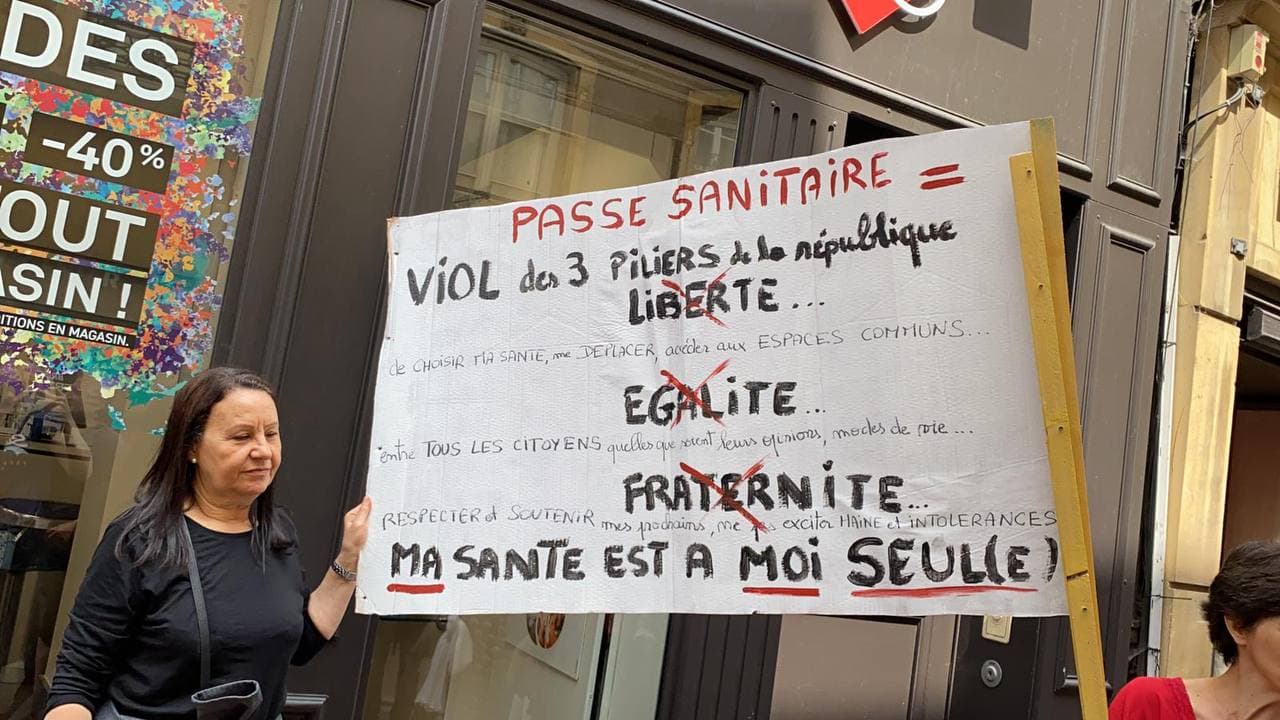 DES
-40%
OUT
ASIN !
ITIONS EN MAGASIN.
PASSE SANITAIRE =
VIOL des 3 PILIERS de la république
LIBERTE...
de CHOISIR MA SANTE, me DEPLACER, accéder aux ESPACES COMMUNS...
EGALITE...
entre TOUS LES CITOYENS quelles que soient leurs opinions, modes de vie...
FRATERNITE...
RESPECTER et SOUTENIR mes prochains, ne pas exciter HAINE et INTOLERANCES
MA SANTE EST A MOI SEUL(E)